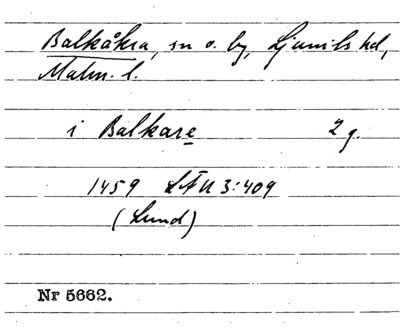 Balkåkra, sn o. by, Ljunits hd,
Malm. l.
i Balkare 2 g.
1459 LÄU 3:409
(Lund)
Nr 5662.